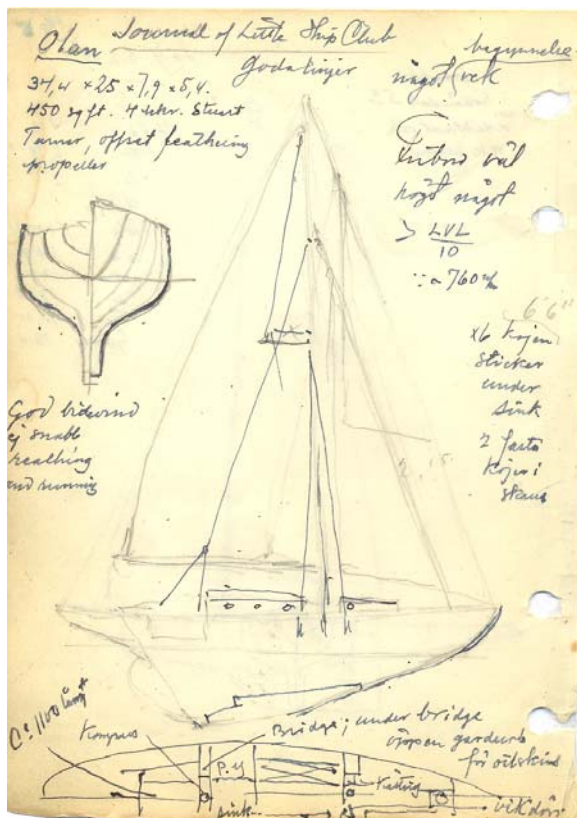 Olan Journal of Little Ship Club
begynnelse
Goda linjer
något vek
34,4 × 25 × 7,9 × 5,4.
450 sqft. 4 hkr. Stuart
Turner, offset feathering
propeller
fribord väl
högt något
> LVL
10
∵ a 760 m/m
6'6"
×6 kojen
sticker
under
sink
2 fasta
kojer i
God bidevind
ej snabb
reaching
and running
2,15
C: 1100 lång
Kompass
Bridge; under bridge
öppen garderob
för oilskins
P.Y
sink
vikdörr